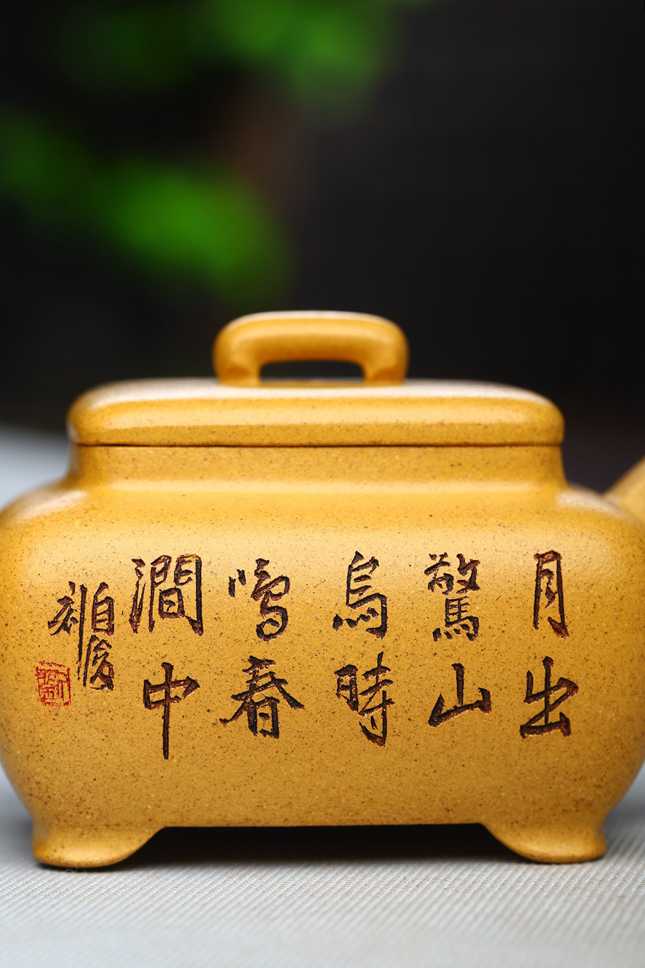 月出
驚山
鳥時
鳴春
澗中
自俊
刻